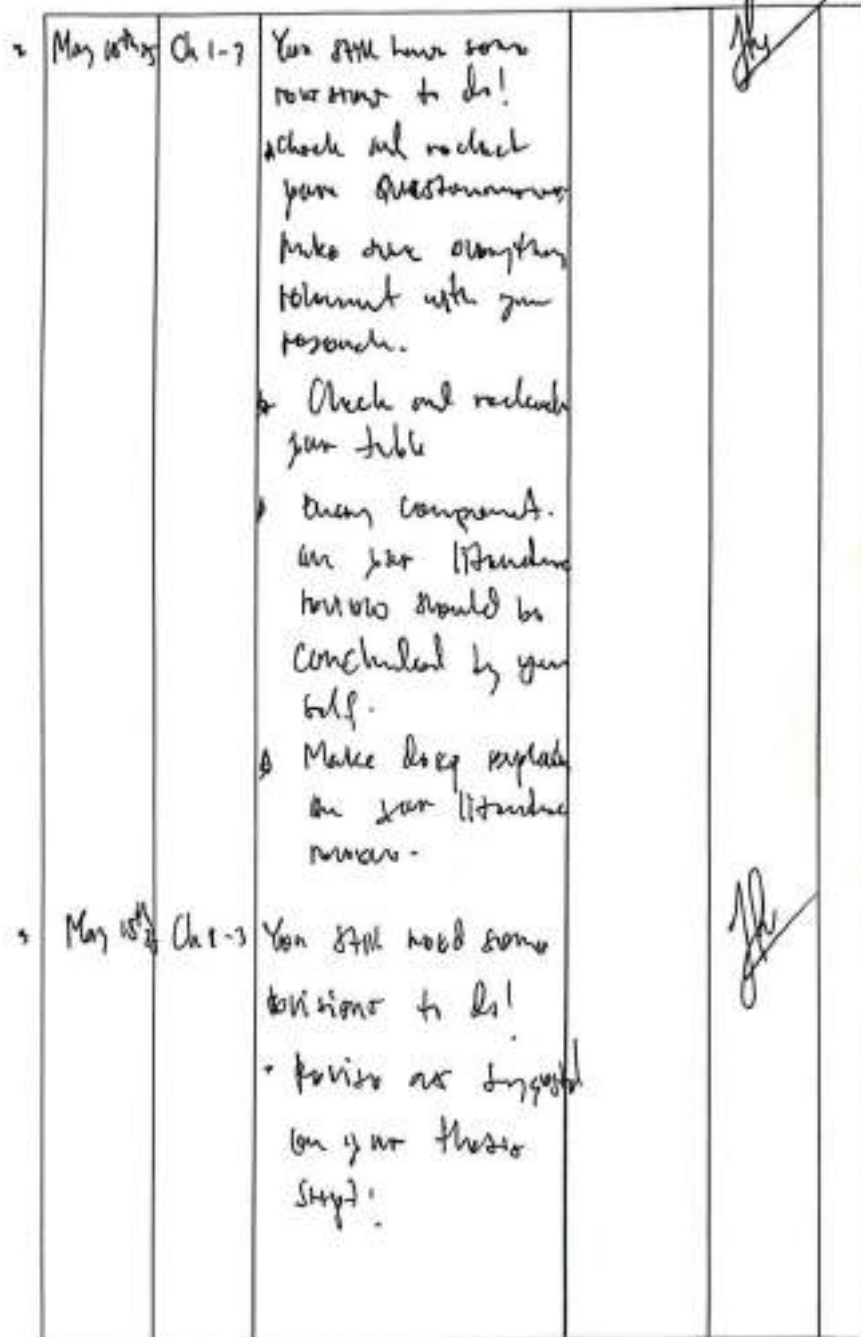 May Ch 1-3 You still have some
revisions to do!
Check and recheck
your Questionnaires
Make sure everything
relevant with your
research.
Check and recheck
your table
Every component
in your literature
review should be
concluded by your
self.
Make deep
in your literature
review.
May 15th Ch 1-3 You still need some
revisions to do!
Revise as suggested
on your thesis